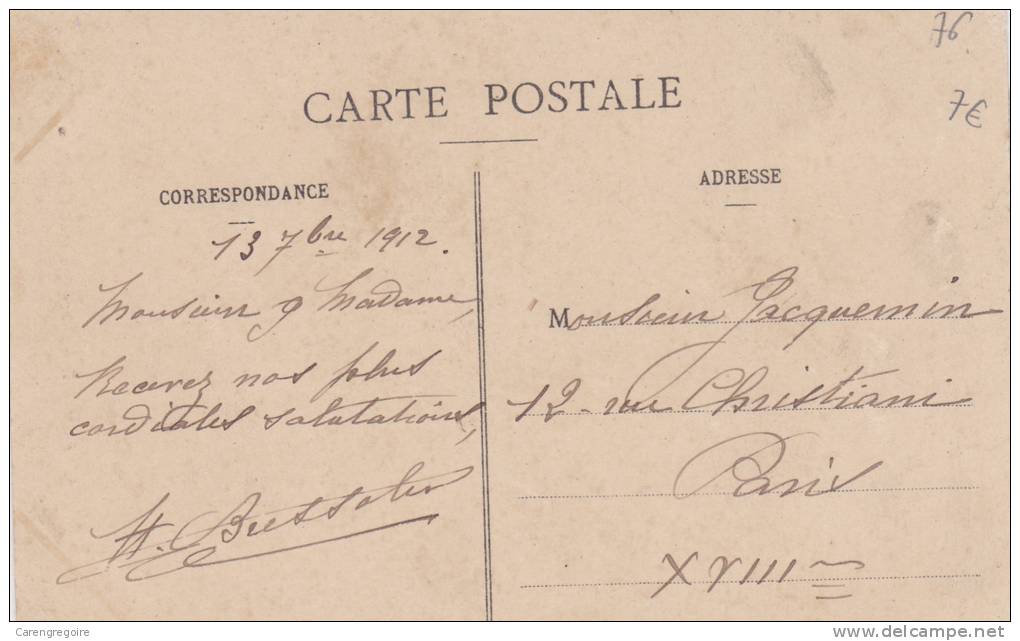 76
7€
CARTE POSTALE
CORRESPONDANCE
13 7bre 1912.
Monsieur & Madame,
Recevez nos plus
cordiales salutations,
H.
ADRESSE
Monsieur Jacquemin
12 - rue Christiani
Paris
XVIIIme
Carengregoire
delcampe.net